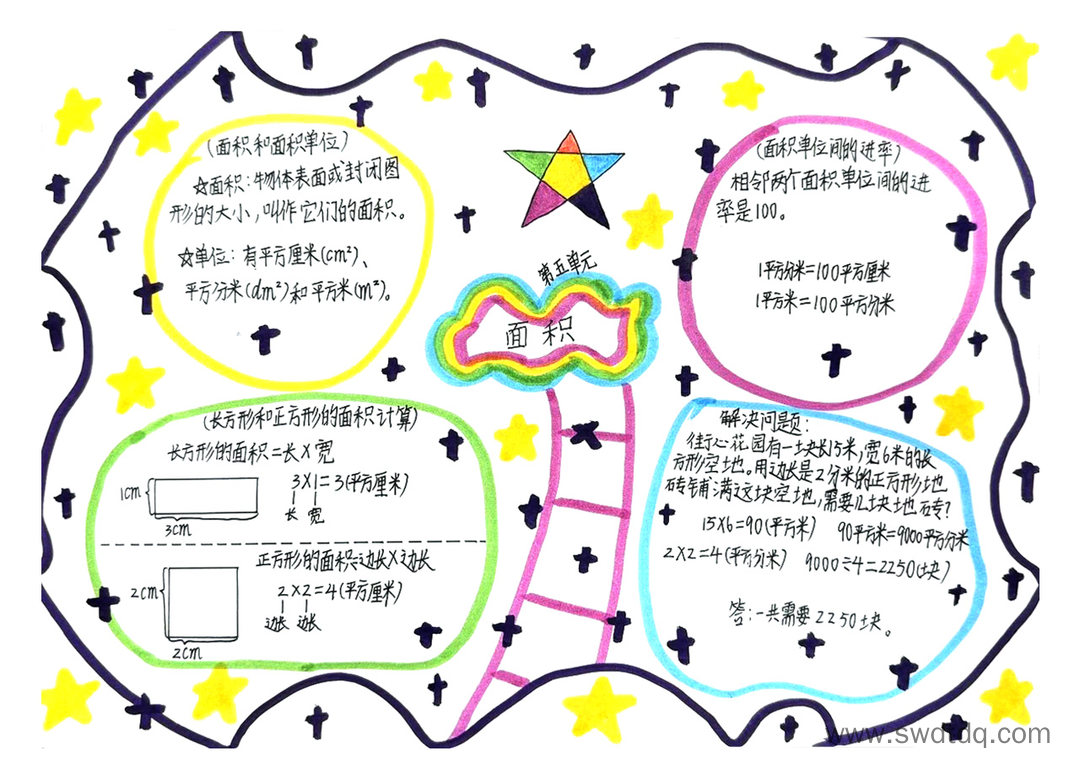 (面积和面积单位)
☆面积:物体表面或封闭图
形的大小,叫作它们的面积。
☆单位:有平方厘米(cm²)、
平方分米(dm²)和平方米(m²)。
第五单元
面积
(面积单位间的进率)
相邻两个面积单位间的进
率是100。
1平方分米=100平方厘米
1平方米=100平方分米
(长方形和正方形的面积计算)
长方形的面积=长×宽
1cm
3cm
3×1=3(平方厘米)
长 宽
正方形的面积=边长×边长
2cm
2cm
2×2=4(平方厘米)
边长 边长
解决问题:
街心花园有一块长15米,宽6米的长
方形空地。用边长是2分米的正方形地
砖铺满这块空地,需要几块地砖?
15×6=90(平方米) 90平方米=9000平方分米
2×2=4(平方分米) 9000÷4=2250(块)
答:一共需要2250块。
www.swdtdq.com